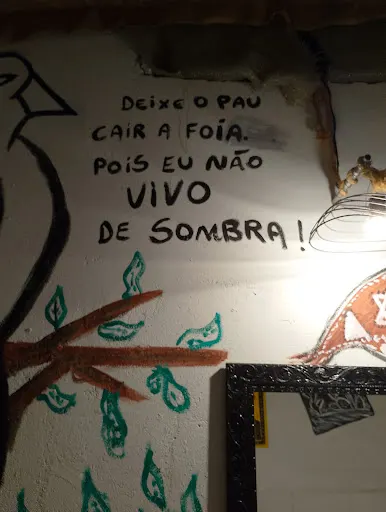 DEIXE O PAU
CAIR A FOIA.
POIS EU NÃO
VIVO
DE SOMBRA!